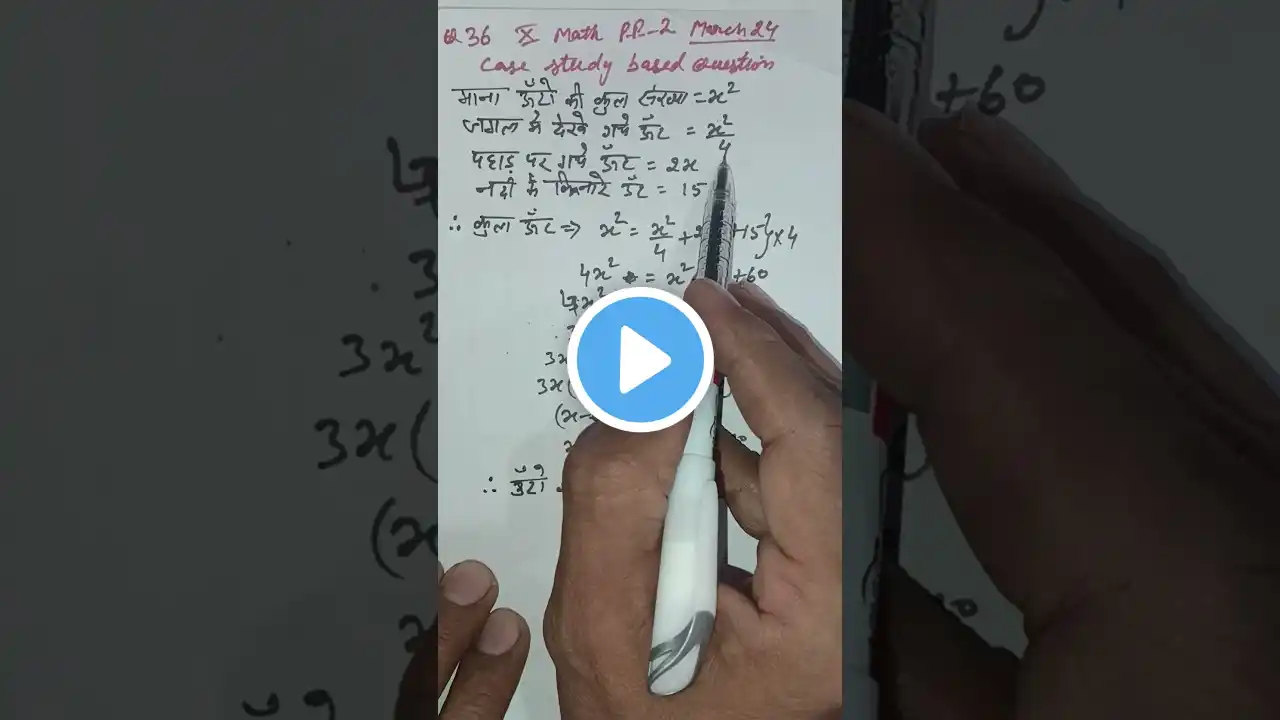 Q 36 X Math P.P.-2 March 24
Case study based Question
माना ऊँटो की कुल संख्या = x²
जंगल मे देखे गये ऊँट = x²/4
पहाड़ पर गये ऊँट = 2x
नदी के किनारे ऊँट = 15
∴ कुल ऊँट ⇒ x² = x²/4 + 2 +15}×4
4x² = x² +60
4x²
3x
3x(
(x-
x
∴ ऊँटो